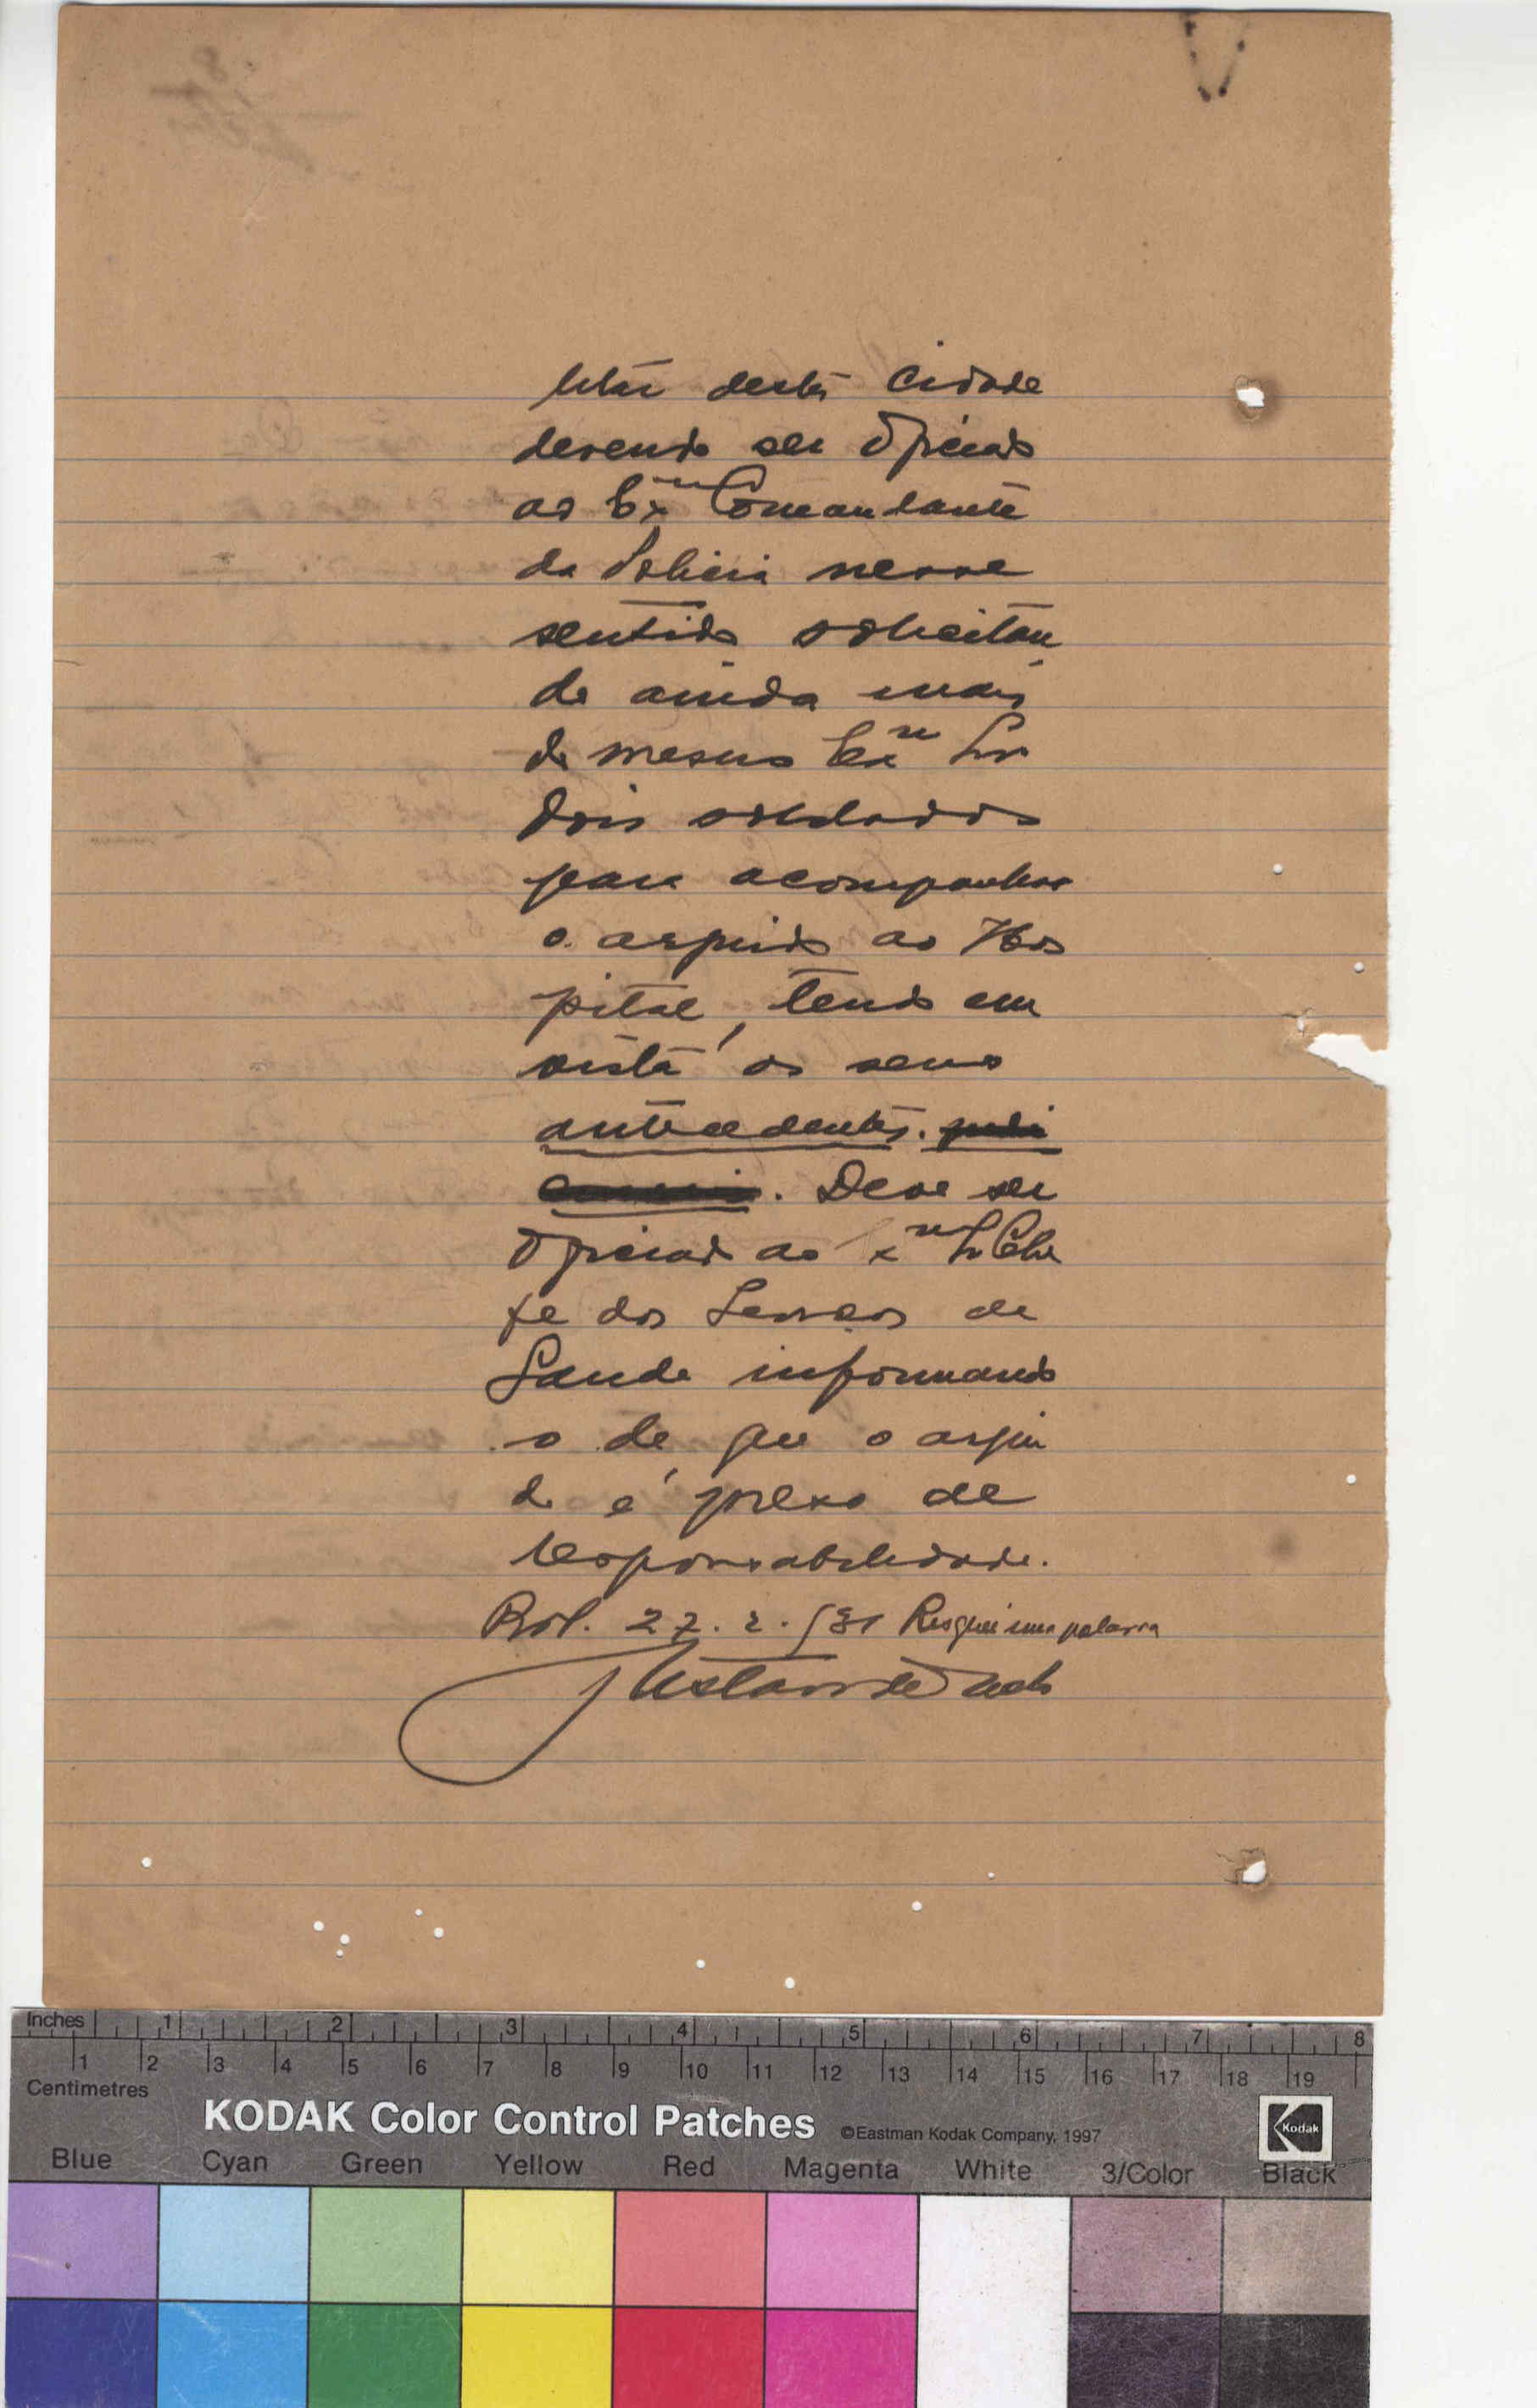 litar desta cidade
devendo ser oficiado
ao Exmo Comandante
da Policia nesse
sentido solicitan
do ainda mais
do mesmo Exmo Snr
dois soldados
para acompanhar
o arguido ao Hos
pital, tendo em
vista os seus
antecedentes.
. Deve ser
oficiado ao Exmo Sr Che
fe dos Serviços de
Saude informando
-o de que o argui
do é preso de
responsabilidade.
27.2.931 Risquei uma palavra
Inches 1 2 3 4 5 6 7 8
1 2 3 4 5 6 7 8 9 10 11 12 13 14 15 16 17 18 19
Centimetres
KODAK Color Control Patches ©Eastman Kodak Company, 1997 Kodak
Blue Cyan Green Yellow Red Magenta White 3/Color Black